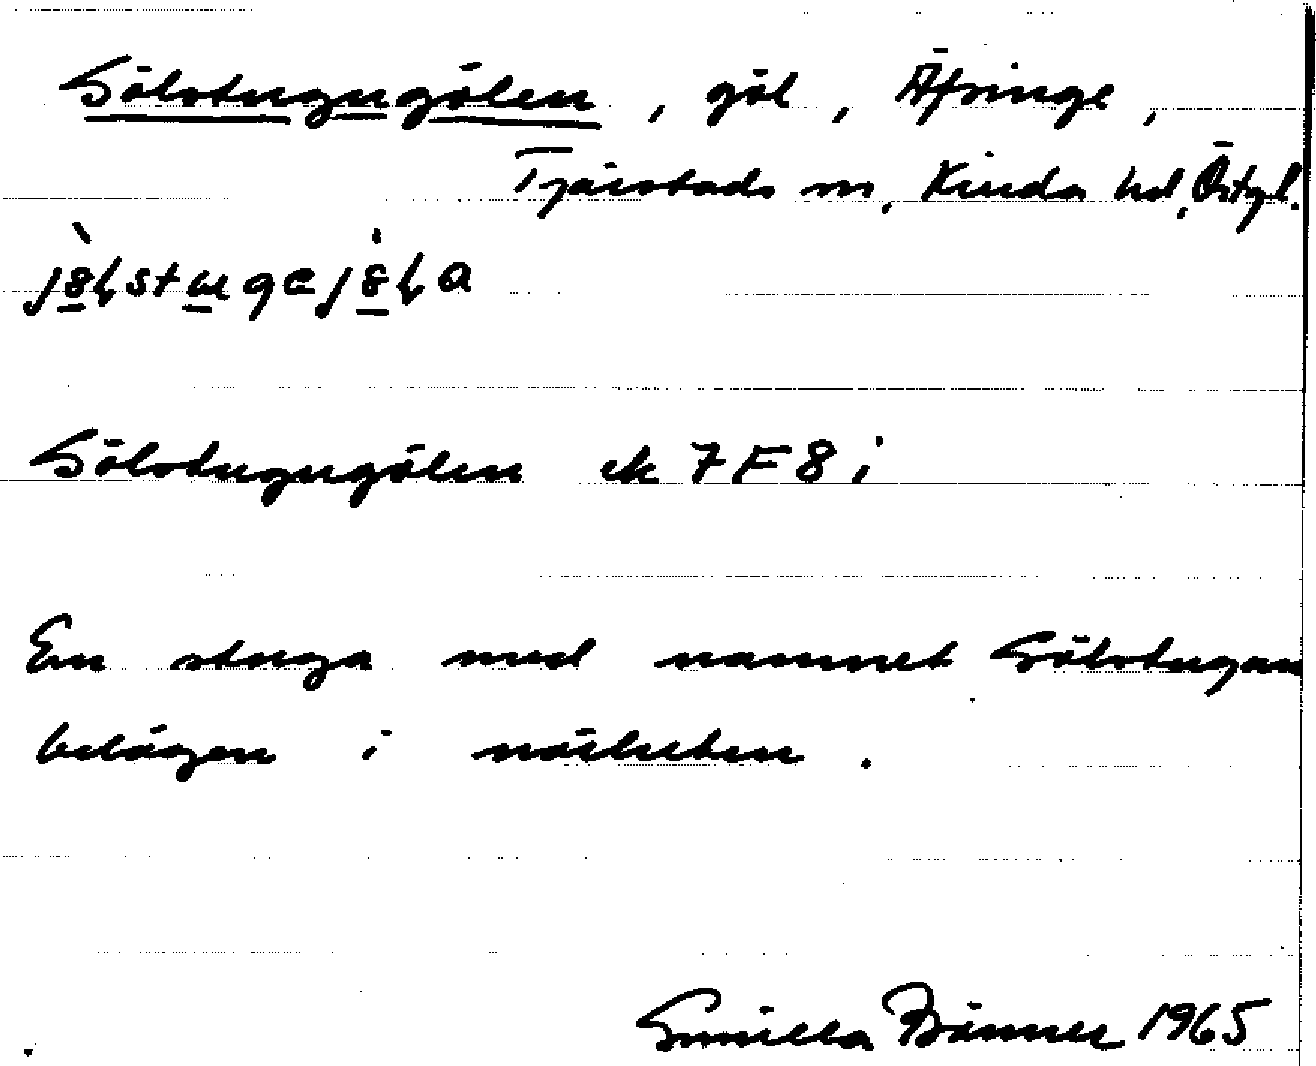 Gölstugugölen, göl, Äfringe,
Tjärstads sn, Kinda hd, Östgl.
Gölstugugölen ek 7F8i
En stuga med namnet Gölstugan
belägen i närheten.
Gunilla 1965